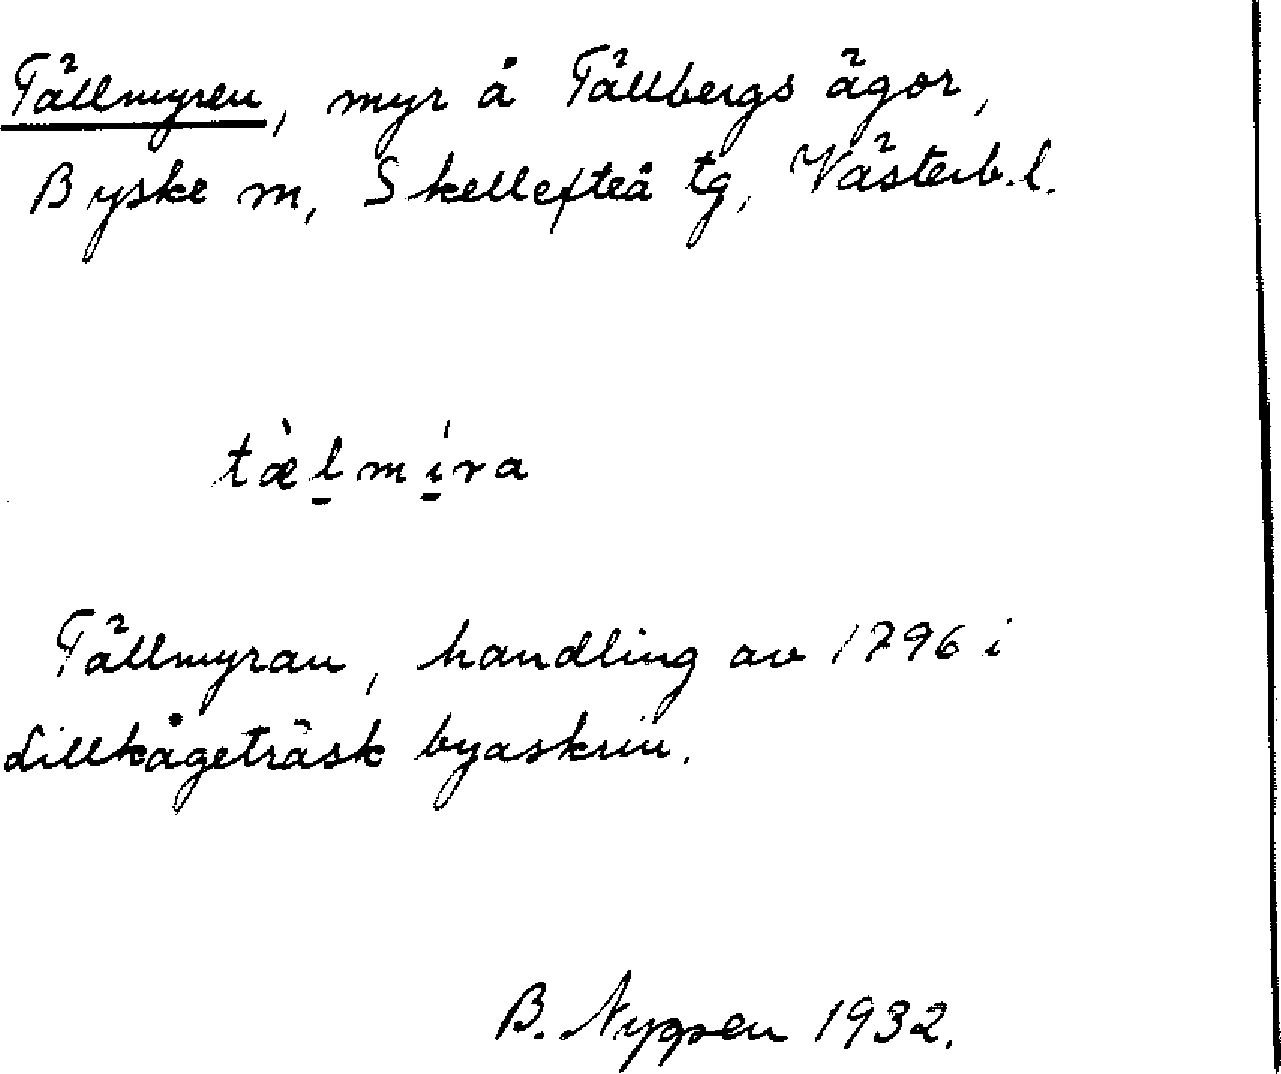 Tällmyren, myr å Tällbergs ägor,
Byske m, Skellefteå tg, Västerb. l.
tæ̀l̲mí̲ra
Tällmyran, handling av 1796 i
Lillkågeträsk byaskrin.
B. Nygren 1932.